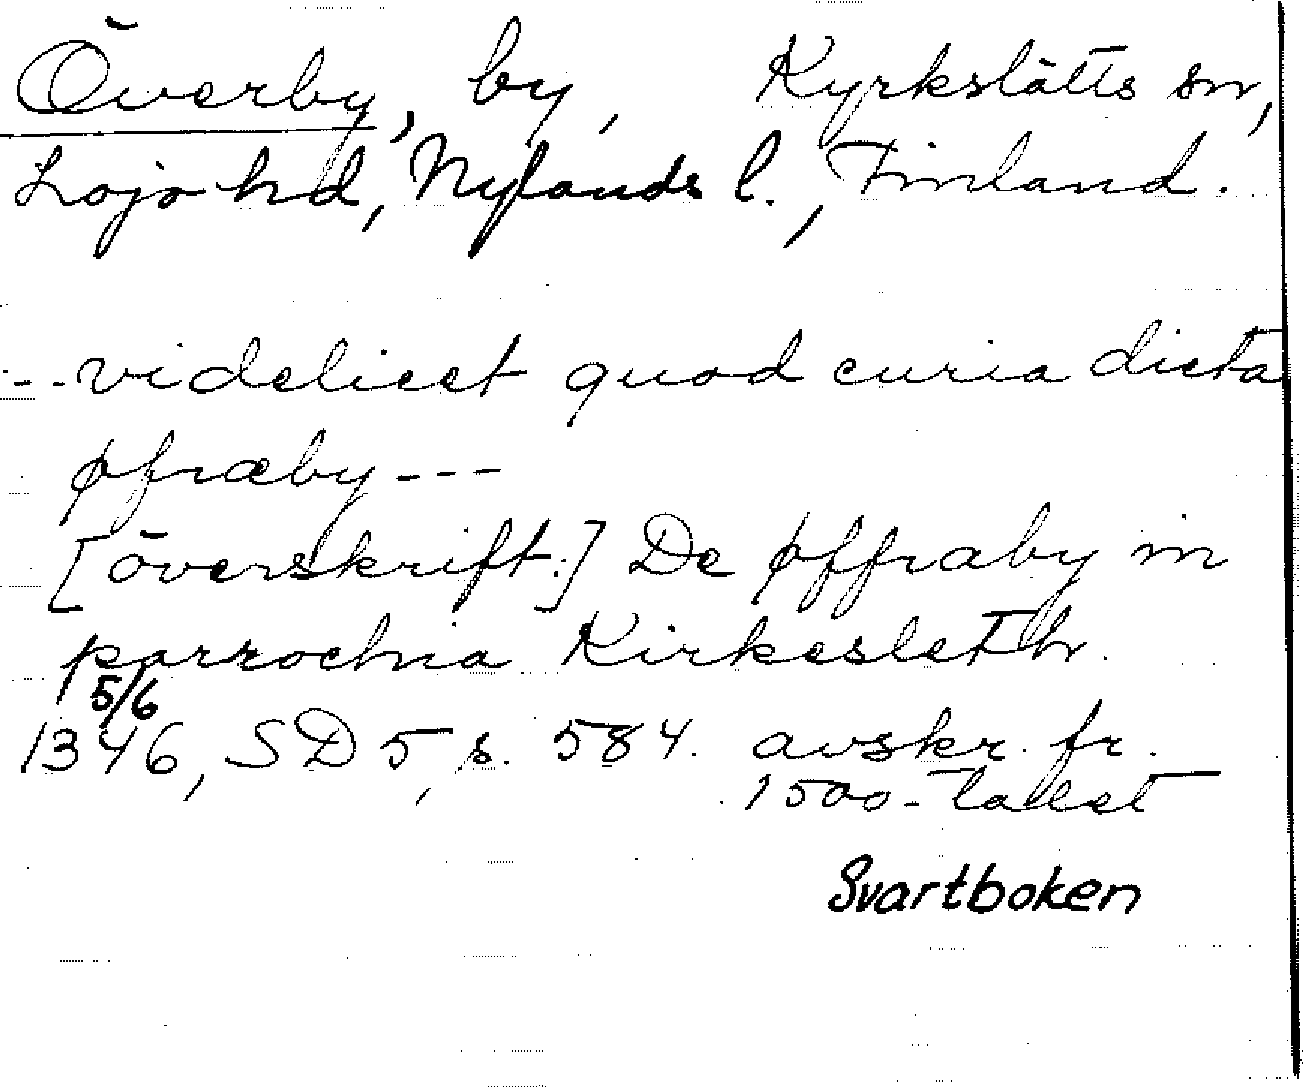 Överby, by, Kyrkslätts sn,
Lojo hd, Nylands l., Finland.
--- videlicet quod curia dicta
øfræby ---
[överskrift:] De øffraby in
parrochia Kirkesleth.
5/6
1346, SD 5, s. 584. avskr. fr.
1500-talet
Svartboken